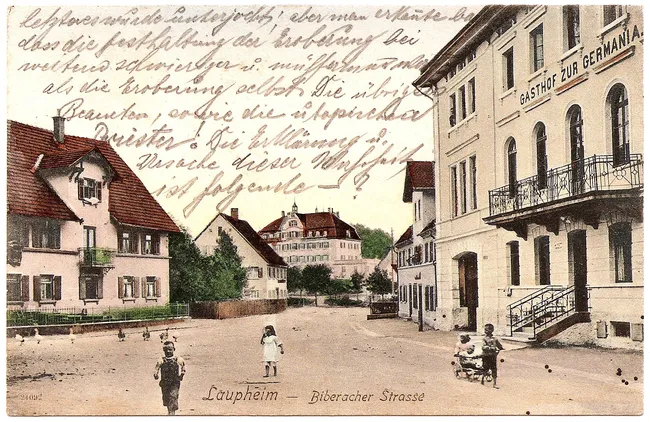 letzteres wurde unterjocht, aber man erkannte ba
dass die Festhaltung der Eroberung bei
weitem schwieriger u. mussamer
als die Eroberung selbst. Die übrigen
Beamten, sowie die utopischen
Priester. Die Erklärung u.
Ursache dieser
ist folgende —
GASTHOF ZUR GERMANIA
Laupheim — Biberacher Strasse